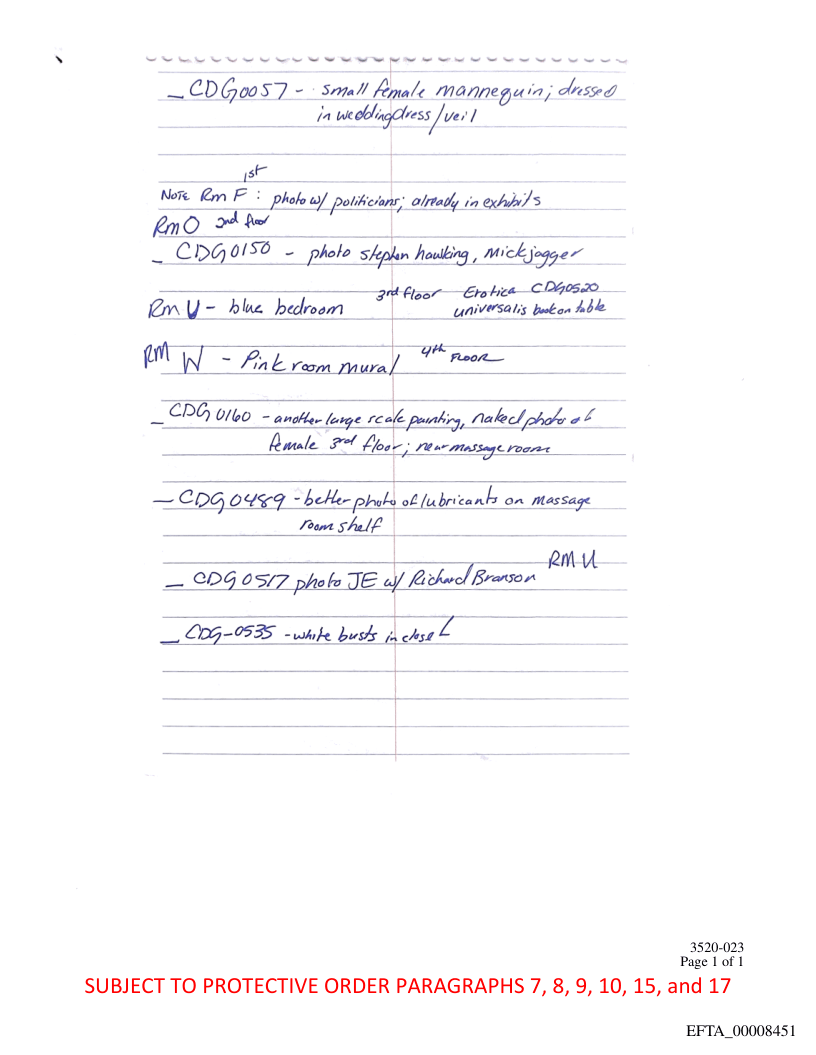 _ CDG0057 - small female mannequin; dressed
in weddingdress/veil
1st
NOTE Rm F : photo w/ politicians; already in exhibits
RmO 2nd floor
_ CDG0150 - photo stephen hawking, Mick jagger
Rm U - blue bedroom 3rd floor Erotica CDG0520
universalis book on table
RM W - Pink room mural 4th FLOOR
_ CDG0160 - another large scale painting, naked photo of
female 3rd floor; near massage room
_ CDG0489 - better photo of lubricants on massage
room shelf
RM U
_ CDG0517 photo JE w/ Richard Branson
_ CDG-0535 - white busts in closet
3520-023
Page 1 of 1
SUBJECT TO PROTECTIVE ORDER PARAGRAPHS 7, 8, 9, 10, 15, and 17
EFTA_00008451